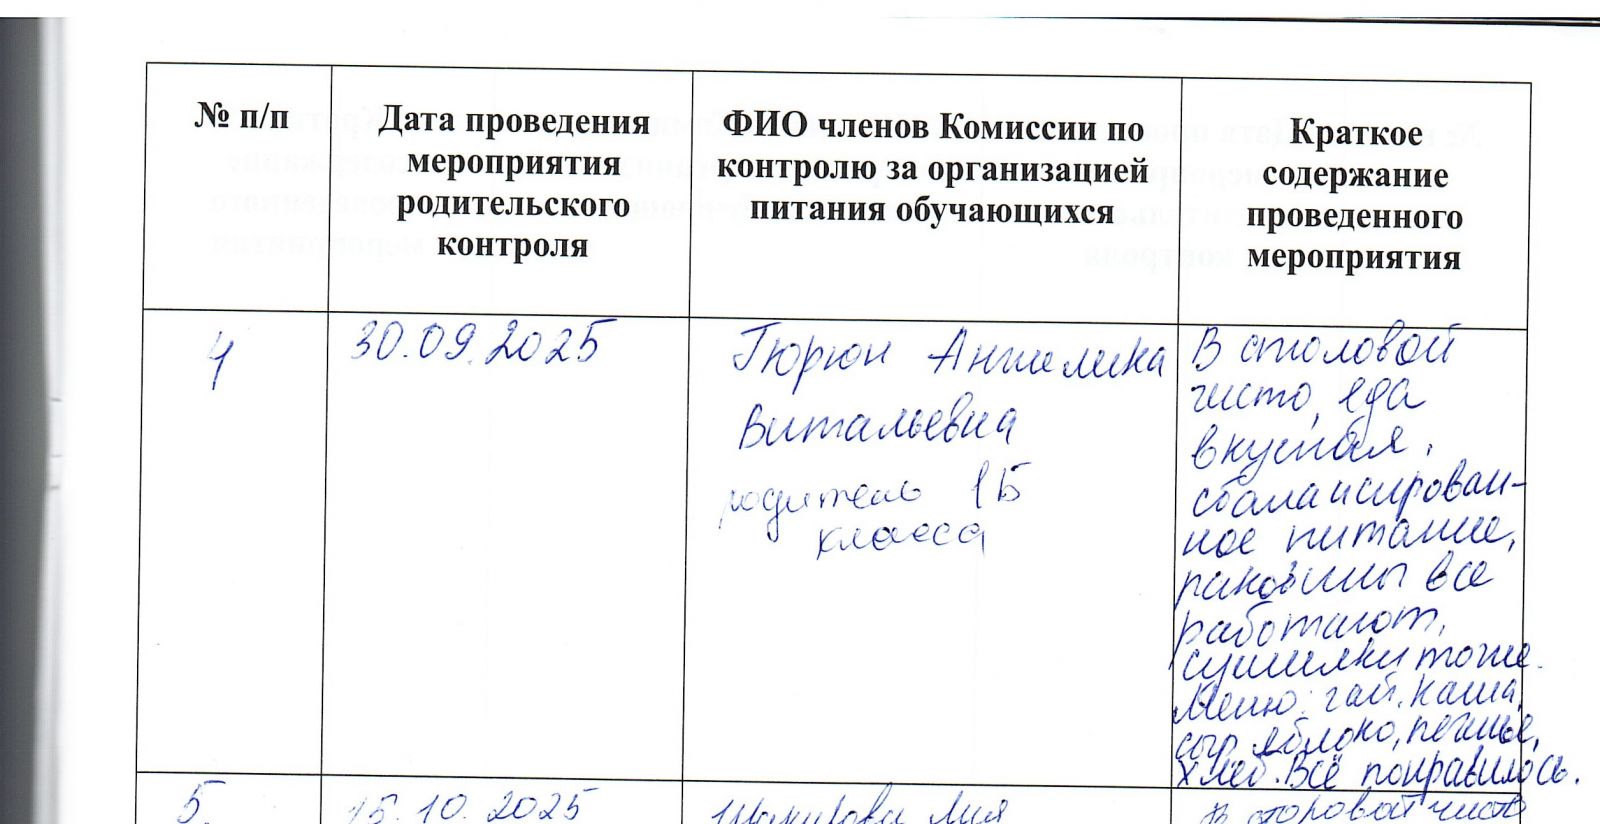 № п/п
Дата проведения
мероприятия
родительского
контроля
ФИО членов Комиссии по
контролю за организацией
питания обучающихся
Краткое
содержание
проведенного
мероприятия
4
30.09.2025
Гюрюн Ангелика
Витальевна
родитель 1Б
класса
В столовой
чисто, еда
вкусная,
сбалансирован-
ное питание,
раковины все
работают,
сушилки тоже.
Меню: чай, каша,
сыр, яблоко, печенье,
хлеб. Всё понравилось.
5.
15.10.2025
В столовой чисто